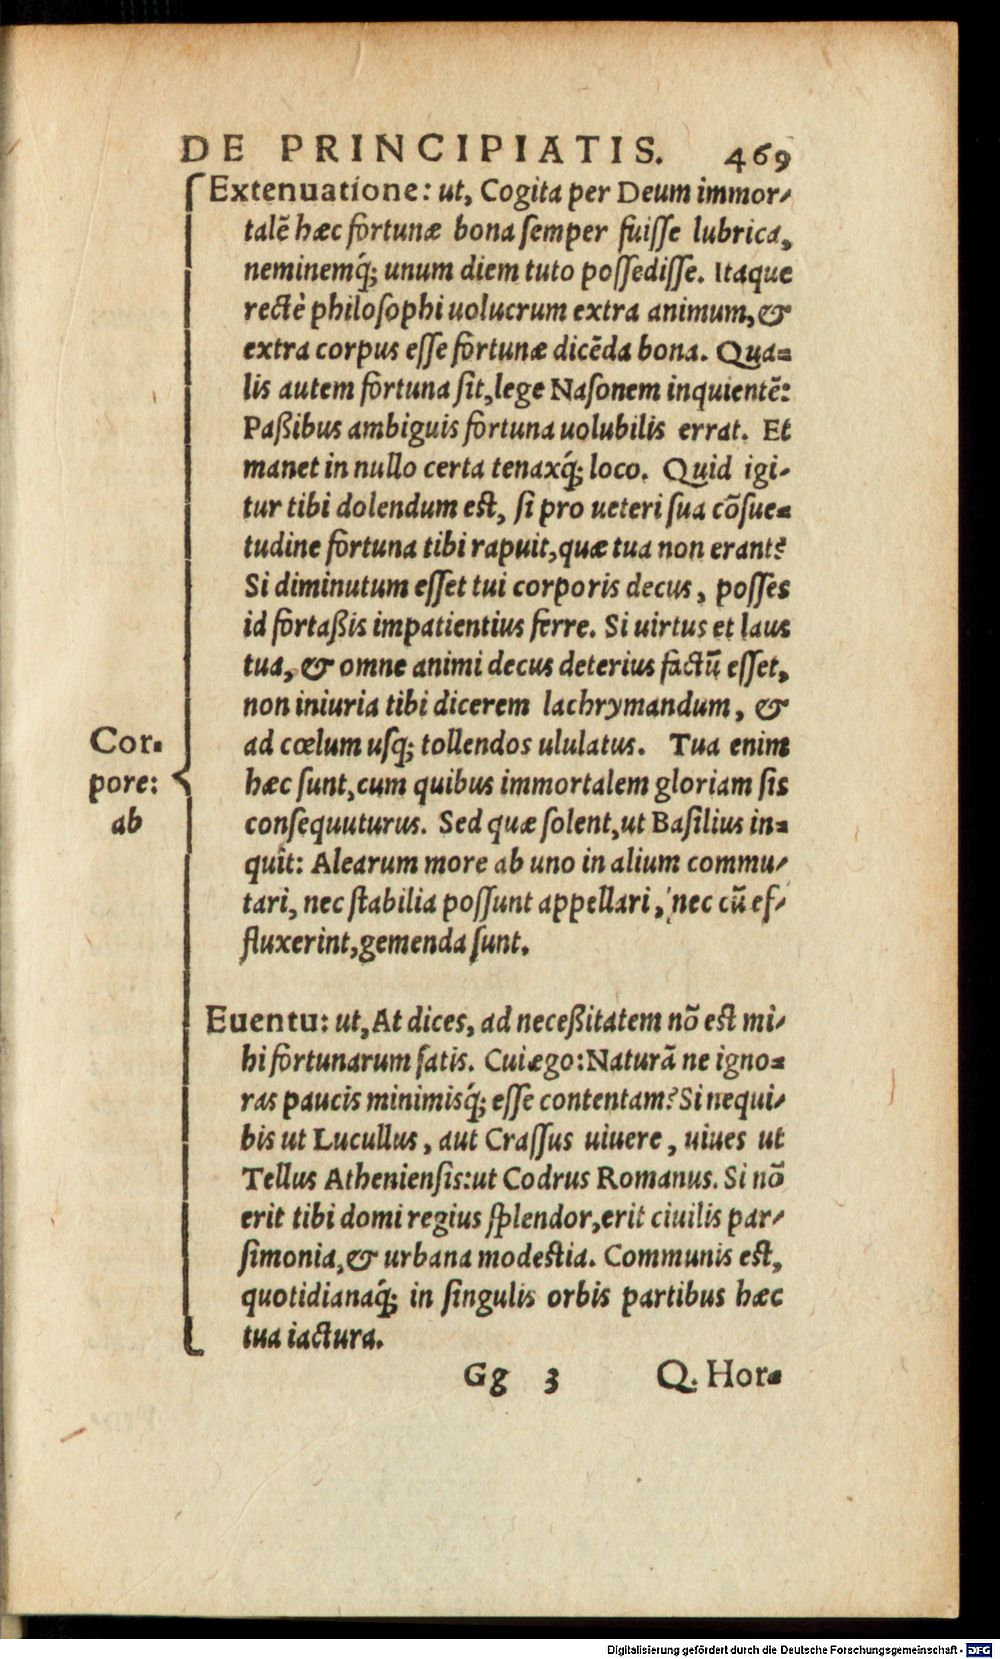 DE PRINCIPIATIS. 469
Extenuatione: ut, Cogita per Deum immor-
talē hæc fortunæ bona ſemper fuiſſe lubrica,
neminemq́; unum diem tuto poſſediſſe. Itaque
rectè philoſophi uolucrum extra animum, &
extra corpus eſſe fortunæ dicēda bona. Qua-
lis autem fortuna ſit, lege Naſonem inquientē:
Paßibus ambiguis fortuna uolubilis errat. Et
manet in nullo certa tenaxq́; loco. Quid igi-
tur tibi dolendum eſt, ſi pro ueteri ſua cōſue-
tudine fortuna tibi rapuit, quæ tua non erant?
Si diminutum eſſet tui corporis decus, poſſes
id fortaßis impatientius ferre. Si uirtus et laus
tua, & omne animi decus deterius factū eſſet,
non iniuria tibi dicerem lachrymandum, &
ad cœlum uſq; tollendos ululatus. Tua enim
hæc ſunt, cum quibus immortalem gloriam ſis
conſequuturus. Sed quæ ſolent, ut Baſilius in-
quit: Alearum more ab uno in alium commu-
tari, nec ſtabilia poſſunt appellari, nec cū ef-
fluxerint, gemenda ſunt.
Cor-
pore:
ab
Euentu: ut, At dices, ad neceßitatem nō eſt mi-
hi fortunarum ſatis. Cui ego: Naturā ne igno-
ras paucis minimisq́; eſſe contentam? Si nequi-
bis ut Lucullus, aut Craſſus uiuere, uiues ut
Tellus Athenienſis: ut Codrus Romanus. Si nō
erit tibi domi regius ſplendor, erit ciuilis par-
ſimonia, & urbana modeſtia. Communis eſt,
quotidianaq́; in ſingulis orbis partibus hæc
tua iactura.
Gg 3 Q. Hor-
Digitalisierung gefördert durch die Deutsche Forschungsgemeinschaft - DFG